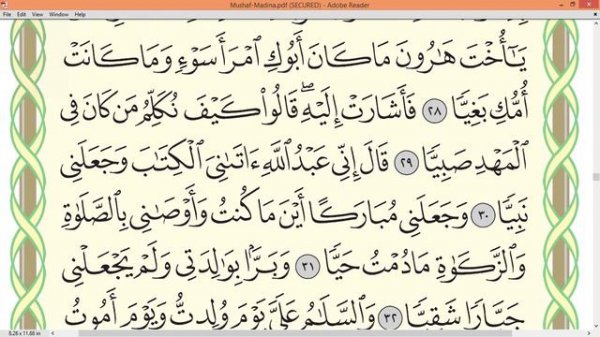 Mushaf-Madina.pdf (SECURED) - Adobe Reader
File Edit View Window Help
يَٰٓأُخْتَ هَٰرُونَ مَا كَانَ أَبُوكِ ٱمْرَأَ سَوْءٖ وَمَا كَانَتْ
أُمُّكِ بَغِيّٗا ٢٨ فَأَشَارَتْ إِلَيْهِۖ قَالُواْ كَيْفَ نُكَلِّمُ مَن كَانَ فِي
ٱلْمَهْدِ صَبِيّٗا ٢٩ قَالَ إِنِّي عَبْدُ ٱللَّهِ ءَاتَىٰنِيَ ٱلْكِتَٰبَ وَجَعَلَنِي
نَبِيّٗا ٣٠ وَجَعَلَنِي مُبَارَكًا أَيْنَ مَا كُنتُ وَأَوْصَٰنِي بِٱلصَّلَوٰةِ
وَٱلزَّكَوٰةِ مَا دُمْتُ حَيّٗا ٣١ وَبَرَّۢا بِوَٰلِدَتِي وَلَمْ يَجْعَلْنِي
جَبَّارٗا شَقِيّٗا ٣٢ وَٱلسَّلَٰمُ عَلَيَّ يَوْمَ وُلِدتُّ وَيَوْمَ أَمُوتُ
8.26 x 11.68 in